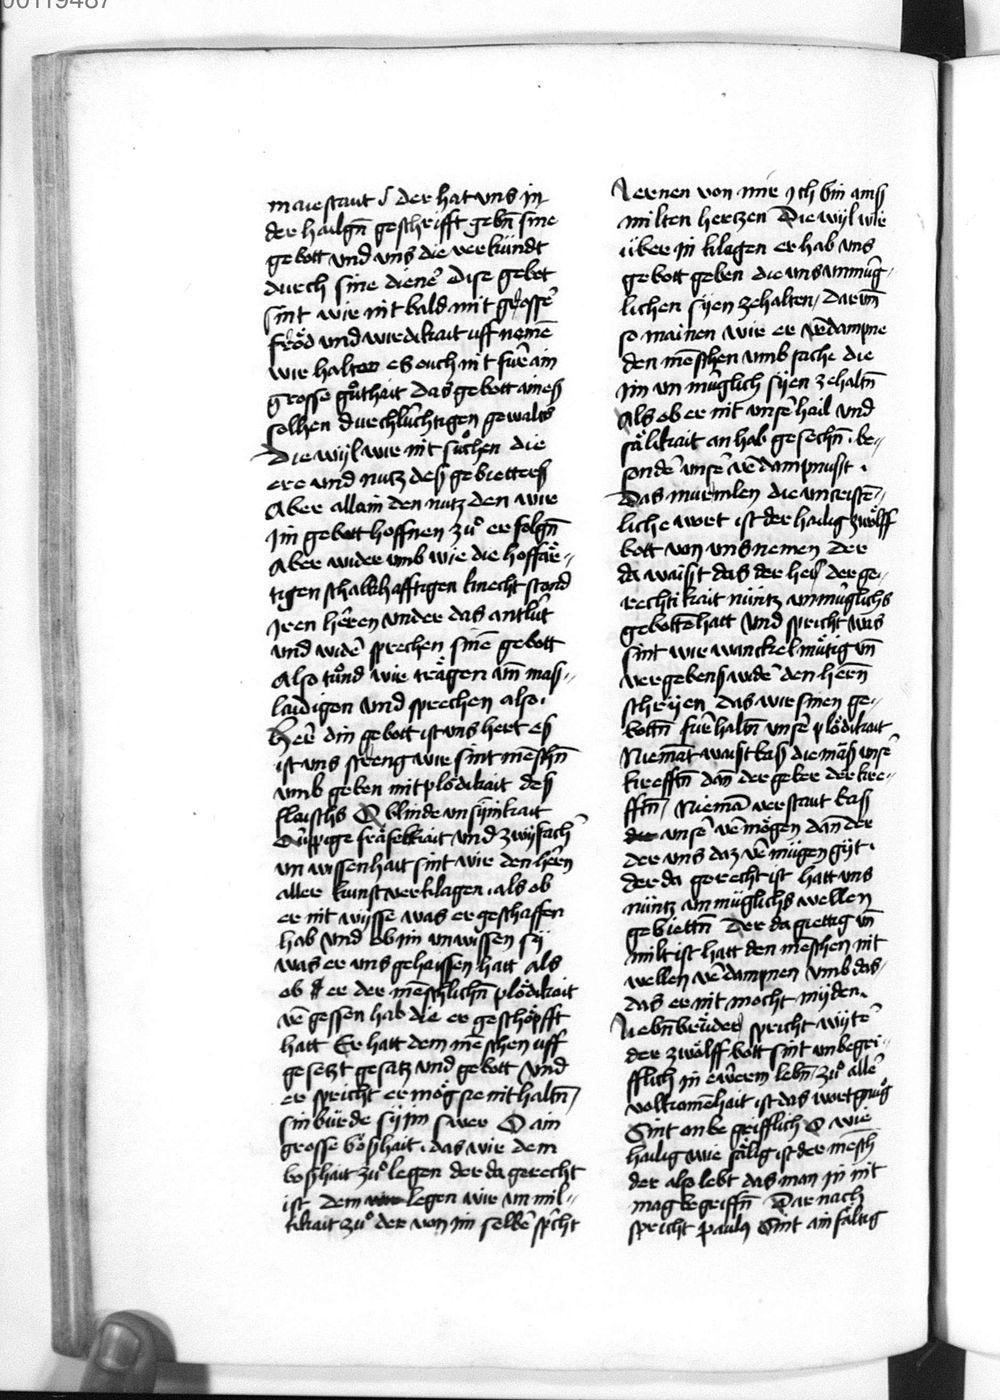 00119487
maiestaut der hat uns in
der hailgn̄ geschrifft gebn̄ sine
gebott vnd vns die verkündt
durch sine diener̄ Dise gebot
sint wir nit bald mit grosser̄
fröd vnd wirdikait uff nemē
wir halten es ouch nit für ain
grosse gůthait das gebott aines
solhen durchlüchtigen gewalts
Die wijl wir nit sůchen die
ere vnd nutz des gebietters
Aber allain den nutz den wir
jm gebott hoffnen zů erfolgn̄
Aber wider vmb wie die hoffär-
tigen schalkhafftigen knecht stond
jren herren vnder das antlüt
vnd wider̄ sprechen sinē gebott
Also tůnd wir trägen vn̄ mass-
laidigen vnd sprechen also.
Herr̄ din gebott ist vns hert es
ist vns streng wir sint mēschn̄
vmb geben mit plödikait des
flaischs O blinde vnsijnikait
O üppige fräfelkait vnd zwijfach
vn wissenhait sint wir den hern̄
aller kunst verklagen als ob
er nit wijsse was er geschaffen
hab vnd ob jm vnwissen sij
was er vns gehaissen hatt als
ob er der mēschlichn̄ plödikait
v̄gessen hab die er geschöpfft
hatt Er hatt dem mēschen uff
gesetzt gesatz vnd gebott vnd
er spricht er mög sie nit haltn̄
sin bürde sij jm swer O ain
grosse bosshait. das wir dem
bosshait zů legen der da gerecht
ist dem legen wir vn mil-
tikait zů der von jm selber̄ spcht
Lernen von mir jch bin ains
milten hertzen Die wijl wir
über jn klagen er hab vns
gebott geben die vns vnmüg-
lichen sijen zehalten, Darum̄
so mainen wir er v̄dampne
den mēschen vmb sache die
jm vn müglich sijen zehaltn̄
Als ob er nit vnser̄ hail vnd
sälikait an hab gesechn̄. be-
sonder̄ vnser̄ v̄dampnusst.
Das murmlen die vncristē-
liche wort ist der hailig zwölff
bott von vns nemen der
da waisst das der her der ge-
rechtikait nüntz vnmüglichs
gebottē hatt vnd spricht was
sint wir winckelmütig vn̄
vergebens wider̄ den hern̄
schrijen das wir sinen ge-
bottn̄ für haltn̄ vnser̄ plödikait
Niemāt waisst bass die mass vnser̄
krefftn̄ dan̄ der geber der kre-
fftn̄, Niemā verstaut bass
vnser̄ v̄mögen dan̄ der
der vns daz v̄mügen gijt.
der da gerecht ist hatt vns
nüntz vnmüglichs wellen
gebiettn̄ Der da giettig vn̄
milt ist hatt den mēschen nit
wellen v̄dampnen vmb das
das er nit mocht mijden.
Liebn̄ brüder spricht wijter̄
der zwölff bott sint vnbegri-
fflich in ewerm lebn̄, zů aller̄
volkomēhait ist das wort gnůg
Sint onbegrifflich O wie
hailig wie sälig ist der mēsch
der also lebt das man jn nit
mag begriffn̄ Dar nach
spricht paulus Sint ainfältig